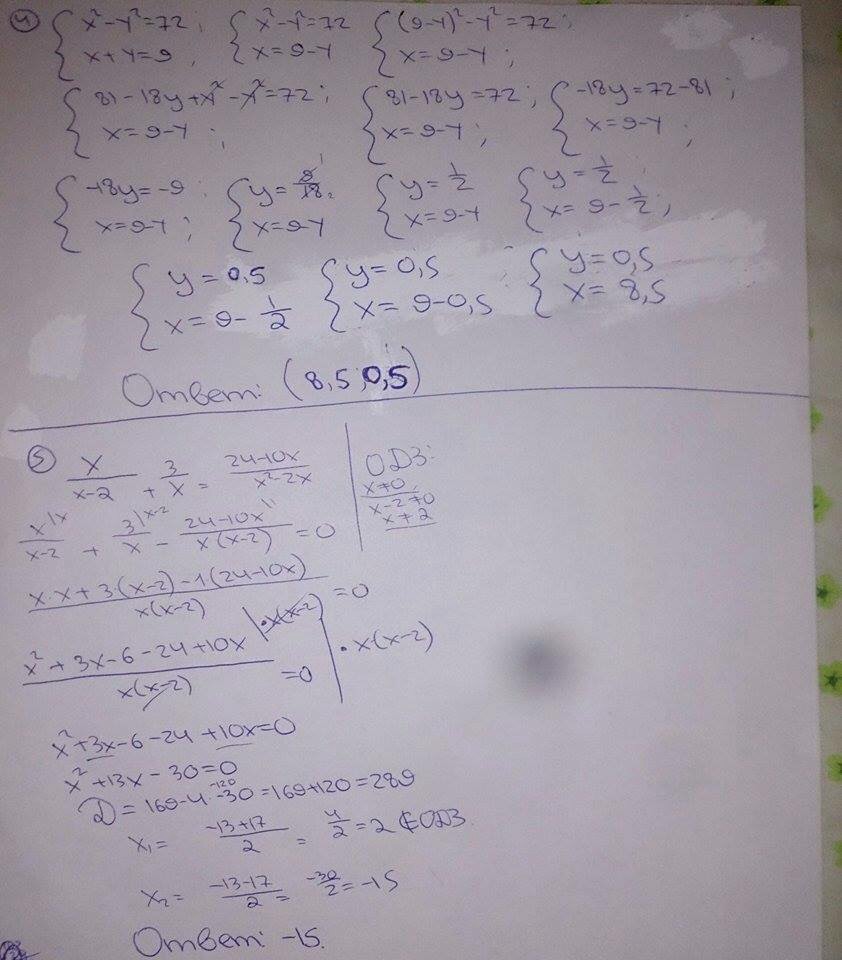 ④ { x² - y² = 72; x + y = 9; { x² - y² = 72 x = 9 - y { (9-y)² - y² = 72; x = 9 - y;
{ 81 - 18y + y² - y² = 72; x = 9 - y; { 81 - 18y = 72; x = 9 - y; { -18y = 72 - 81; x = 9 - y;
{ -18y = -9; x = 9 - y; { y = 9/18 x = 9 - y { y = 1/2 x = 9 - y { y = 1/2 x = 9 - 1/2;
{ y = 0,5 x = 9 - 1/2 { y = 0,5 x = 9 - 0,5 { y = 0,5 x = 8,5
Ответ: (8,5; 0,5)
⑤ x/(x-2) + 3/x = (24-10x)/(x²-2x)
ОДЗ:
x ≠ 0
x - 2 ≠ 0
x ≠ 2
x\x/(x-2) + 3\x-2/x - (24-10x)\1/(x(x-2)) = 0
(x·x + 3·(x-2) - 1(24-10x))/(x(x-2)) = 0
(x² + 3x - 6 - 24 + 10x)/(x(x-2)) = 0 | · x(x-2)
x² + 3x - 6 - 24 + 10x = 0
x² + 13x - 30 = 0
D = 169 - 4 · -30 = 169 + 120 = 289
x₁ = (-13+17)/2 = 4/2 = 2 ∉ ОДЗ
x₂ = (-13-17)/2 = -30/2 = -15
Ответ: -15.